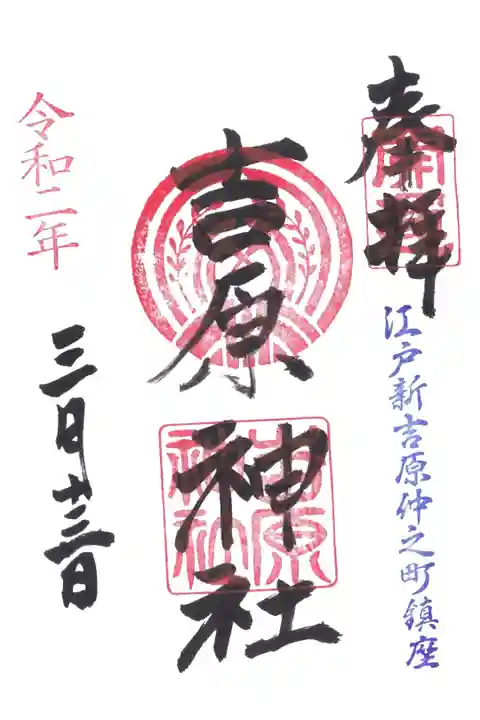 奉拝
江戸新吉原仲之町鎮座
吉原神社
吉原神社
令和二年
三月廿三日